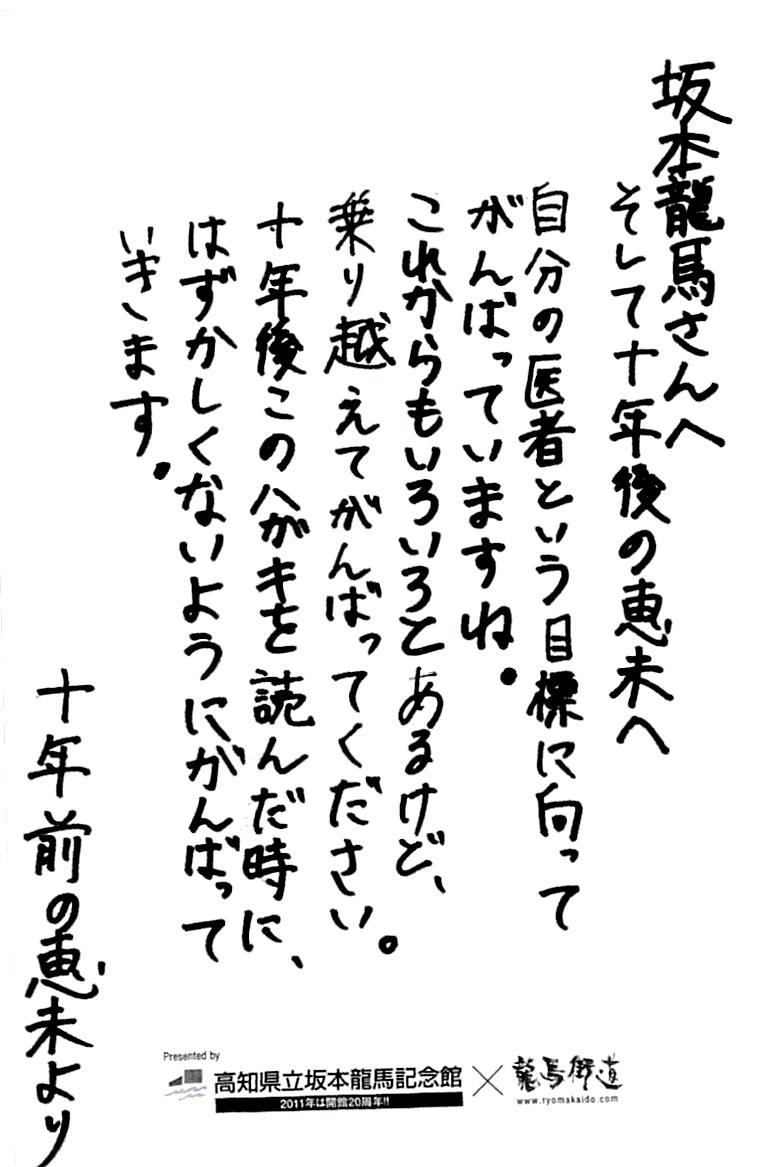 坂本龍馬さんへ
そして十年後の恵未へ
自分の医者という目標に向って
がんばっていますね。
これからもいろいろとあるけど、
乗り越えてがんばってください。
十年後このハガキを読んだ時に、
はずかしくないようにがんばって
いきます。
十年前の恵未より
Presented by
高知県立坂本龍馬記念館
2011年は開館20周年!!
×
龍馬街道
www.ryomakaido.com